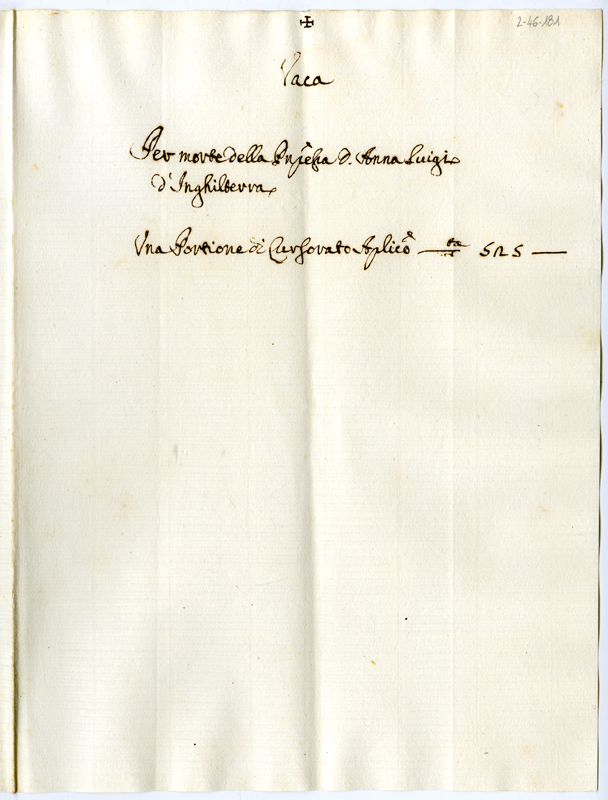 ✠
2-46-181
Vaca
Per morte della Pnſeſsa D. Anna Luigi
d'Inghilterra
Vna Portione di Cursorato Aplicõ — 525 —